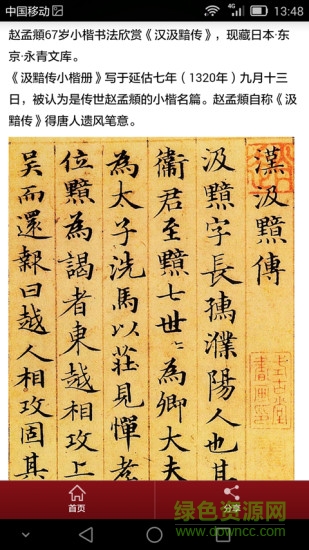 中国移动
13:48
赵孟頫67岁小楷书法欣赏《汉汲黯传》，现藏日本·东
京·永青文库。
《汲黯传小楷册》写于延估七年（1320年）九月十三
日，被认为是传世赵孟頫的小楷名篇。赵孟頫自称《汲
黯传》得唐人遗风笔意。
漢汲黯傳
汲黯字長孺濮陽人也其
衛君至黯七世〻為卿大夫
為太子洗馬以莊見憚孝
位黯為謁者東越相攻上
吳而還報曰越人相攻固其
首页
分享
绿色资源网
www.downcc.com